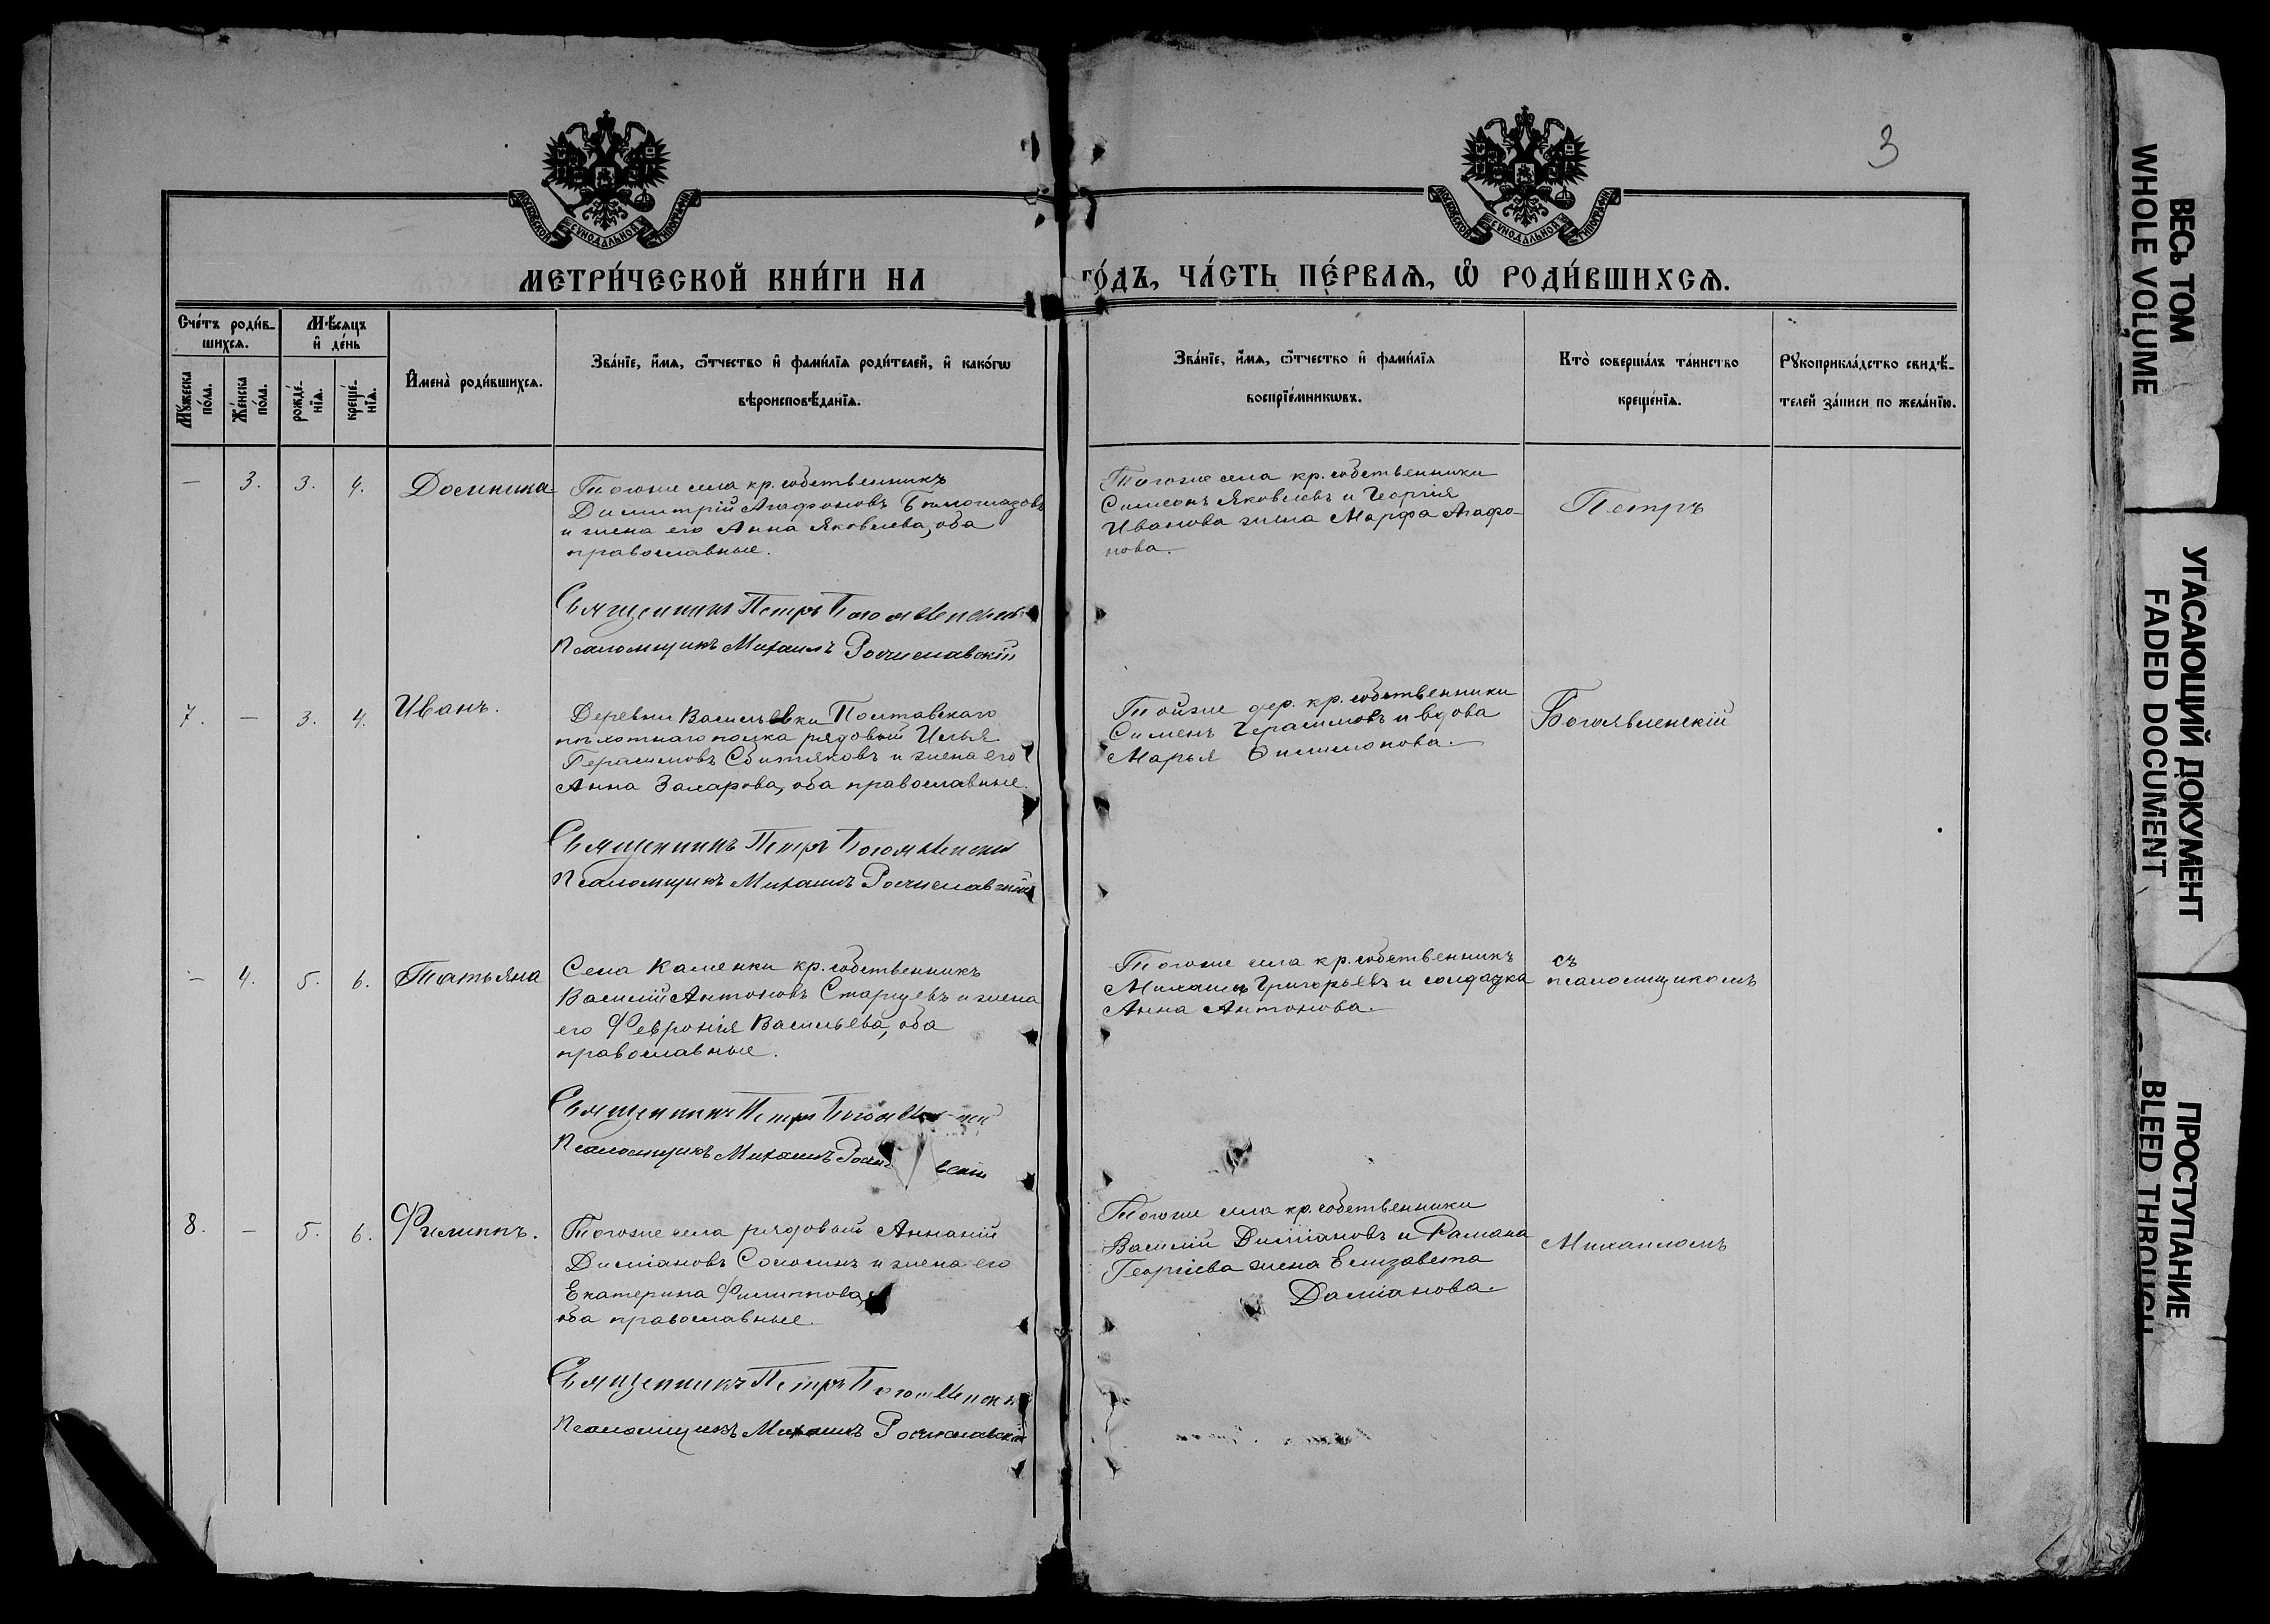 3
МОСКОВСКОЙ СУНОДАЛЬНОЙ ТИПОГРАФІИ
МОСКОВСКОЙ СУНОДАЛЬНОЙ ТИПОГРАФІИ
МЕТРИ́ЧЕСКОЙ КНИ́ГИ НА
го́дъ, ЧА́СТЬ ПЕ́РВАѦ, Ѽ РОДИ́ВШИХСѦ.
Сче́тъ роди́в-
шихсѧ.
Мѣсѧцъ
и҆ де́нь
Мꙋ́жеска
по́ла.
Же́нска
по́ла.
рожде́-
нїѧ.
креще́-
нїѧ.
И҆мена̀ роди́вшихсѧ.
Зва́нїе, и҆́мѧ, ѻ҆́тчество и҆ фами́лїѧ роди́телей, и҆ како́гѡ
вѣроисповѣ́данїѧ.
Зва́нїе, и҆́мѧ, ѻ҆́тчество и҆ фами́лїѧ
воспрїе́мникѡвъ.
Кто̀ соверша́лъ та́инство
креще́нїѧ.
Рꙋкоприкла́дство свидѣ́-
телей за́писи по жела́нїю.
— 3. 3. 4. Домника
Тогоже села кр. собственникъ
Димитрій Агафоновъ
и жена его Анна Яковлева, оба
православные.
Священникъ Петръ Богоявленскій
Псаломщикъ Михаилъ Рочиславскій
Тогоже села кр. собственники
Симеонъ Яковлевъ и Георгія
Иванова жена Марфа Агафо-
нова.
Петръ
7. — 3. 4. Иванъ.
Деревни Васильевки Полтавскаго
пѣхотнаго полка рядовый Илья
Герасимовъ Сбитяковъ и жена его
Анна Захарова, оба православные.
Священникъ Петръ Богоявленскій
Псаломщикъ Михаилъ Рочиславскій
Тойже дер. кр. собственники
Симеонъ Герасимовъ и вдова
Марья Филимонова.
Богоявленскій
— 4. 5. 6. Татьяна
Села Каменки кр. собственникъ
Василій Антоновъ Старцевъ и жена
его Февронія Васильева, оба
православные.
Священникъ Петръ
Псаломщикъ Михаилъ
Тогоже села кр. собственникъ
Михаилъ Григорьевъ и солдатка
Анна Антонова.
съ
псаломщикомъ
8. — 5. 6. Филиппъ.
Тогоже села рядовый Ананій
Диміановъ Соломинъ и жена его
Екатерина Филиппова,
оба православные.
Священникъ Петръ Богоявленскій
Псаломщикъ Михаилъ Рочиславскій
Тогоже села кр. собственники
Василій Диміановъ и Романа
Георгіева жена Елизавета
Даміанова.
Михаиломъ
ВЕСЬ ТОМ
WHOLE VOLUME
УГАСАЮЩИЙ ДОКУМЕНТ
FADED DOCUMENT
ПРОСТУПАНИЕ
BLEED THROUGH